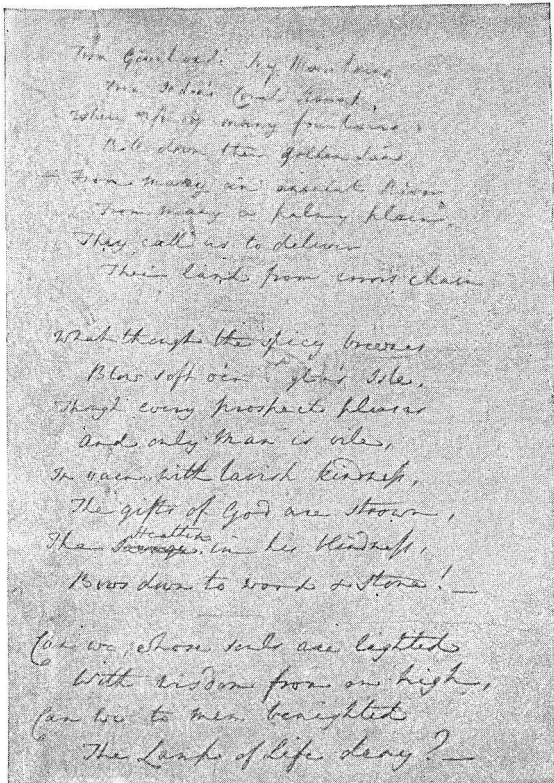 From Greenland's Icy Mountains
From India's Coral Strand,
Where Afric's many fountains,
Roll down their golden Sand
From many an ancient River
From many a palmy plain,
They call us to deliver
Their land from errors chain
What though the spicy breezes
Blow soft o'er Isle,
Though every prospect pleases
And only Man is vile,
In vain with lavish kindness,
The gifts of God are strown,
The Savage Heathen in his blindness,
Bows down to wood & Stone! —
Can we, whose souls are lighted
With wisdom from on high,
Can we to men benighted
The Lamp of Life deny? —